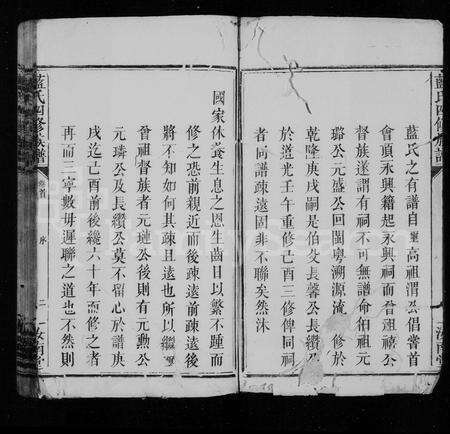 藍氏四修族譜
藍氏之有譜自 高祖渭公倡嘗首
會項永興籍起永興祠而曾祖禧公
督族遂謂有祠不可無譜命伯祖元
璐公元盛公回閩粵溯源流 修於
乾隆庚戌嗣是伯父長馨公長纘公
於道光壬午重修己酉三修俾同祠
者同譜疎遠固非不聯矣然沐
國家休養生息之恩生齒日以繁不踵而
修之恐前親近而後疎遠前疎遠後
將不知如何其疎且遠也所以繼
曾祖督族者元璉公後則有元勲公
元璘公及長纘公莫不留心於譜庚
戌迄己酉前後纔六十年而修之者
再而三寧數毋遲聯之道也不然則
藍氏四修族譜
卷首
序
二
汝南堂